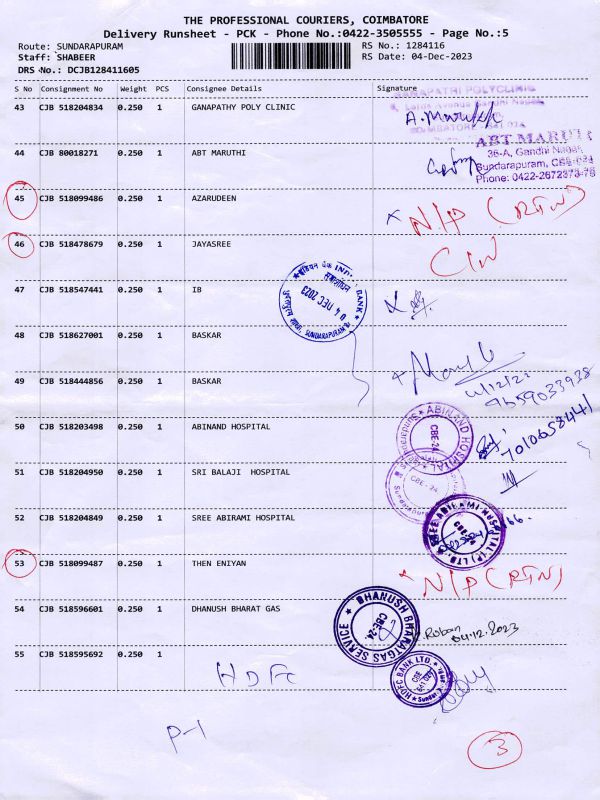 THE PROFESSIONAL COURIERS, COIMBATORE
Delivery Runsheet - PCK - Phone No.:0422-3505555 - Page No.:5
Route: SUNDARAPURAM RS No.: 1284116
Staff: SHABEER RS Date: 04-Dec-2023
DRS No.: DCJB128411605
S No Consignment No Weight PCS Consignee Details Signature
43 CJB 518204834 0.250 1 GANAPATHY POLY CLINIC
GANAPATHI POLYCLINIC
A. Maruthi
44 CJB 80018271 0.250 1 ABT MARUTHI
ABT MARUTI
36-A, Gandhi Nagar,
Sundarapuram, CBE-024
Phone: 0422-2672373-76
45 CJB 518099486 0.250 1 AZARUDEEN N/P (RTN)
46 CJB 518478679 0.250 1 JAYASREE
47 CJB 518547441 0.250 1 IB
इंडियन बैंक INDIAN BANK
04 DEC 2023
SUNDARAPURAM
48 CJB 518627001 0.250 1 BASKAR
49 CJB 518444856 0.250 1 BASKAR
9659033928
50 CJB 518203498 0.250 1 ABINAND HOSPITAL
ABINAND HOSPITAL
CBE-24
7010658441
51 CJB 518204950 0.250 1 SRI BALAJI HOSPITAL
CBE-24
52 CJB 518204849 0.250 1 SREE ABIRAMI HOSPITAL
SREE ABIRAMI HOSPITAL (P) LTD.
53 CJB 518099487 0.250 1 THEN ENIYAN N/P (RTN)
54 CJB 518596601 0.250 1 DHANUSH BHARAT GAS
DHANUSH BHARATGAS SERVICE
CBE-24.
04.12.2023
55 CJB 518595692 0.250 1
HDFC
HDFC BANK LTD.
P-1
3